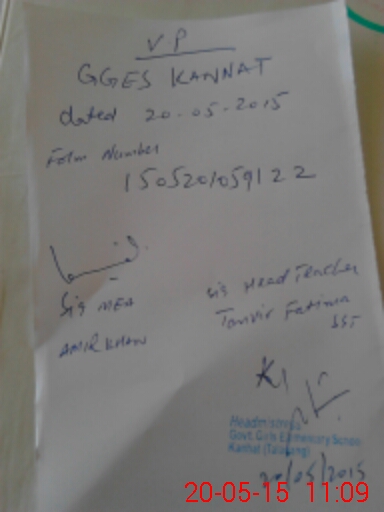 VP
GGES KANNAT
dated 20-05-2015
Form Number
1505201059122
Sig MEA
AMIR KHAN
sig Head Teacher
Tanvir Fatima
SST
Headmistress
Govt. Girls Elementary School
Kannat (Talagang)
20/05/2015
20-05-15 11:09